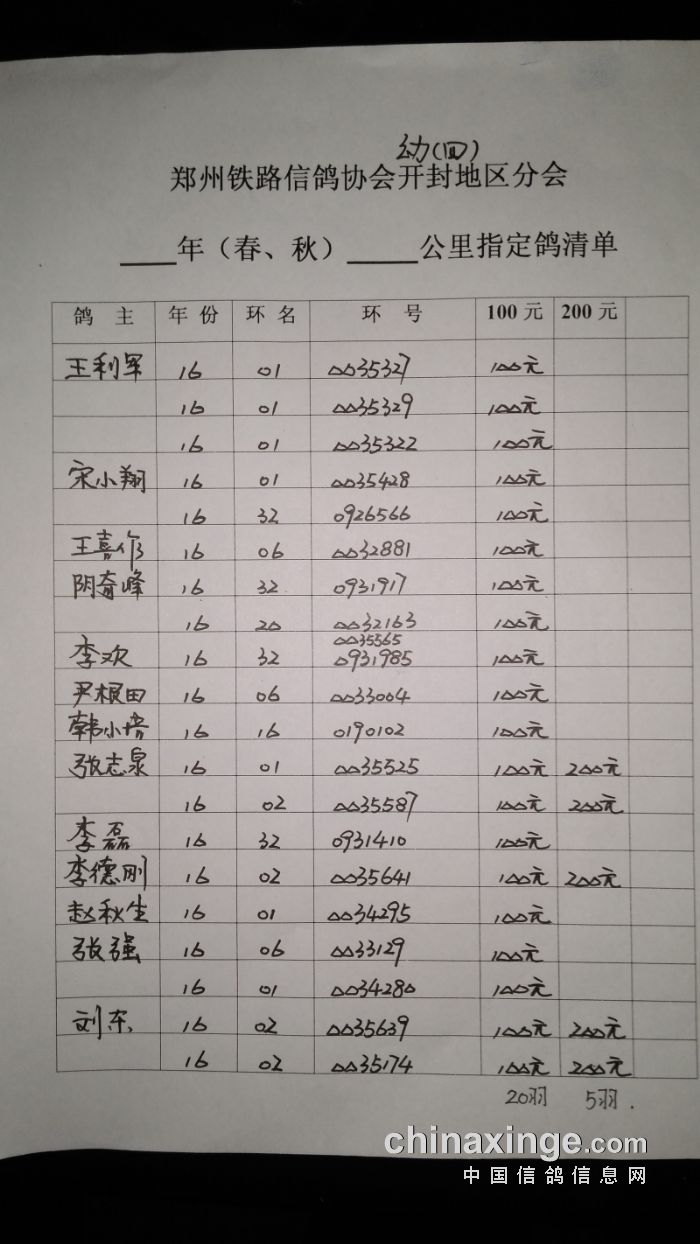 幼(四)
郑州铁路信鸽协会开封地区分会
____年（春、秋）_____公里指定鸽清单
鸽 主 年 份 环 名 环 号 100 元 200 元
王利军 16 01 0035327 100元
16 01 0035329 100元
16 01 0035322 100元
宋小翔 16 01 0035428 100元
16 32 0926566 100元
王喜 16 06 0032881 100元
阴奇峰 16 32 0931917 100元
16 20 0032163 100元
0035565
李欢 16 32 0931985 100元
尹根田 16 06 0033004 100元
韩小培 16 16 0190102 100元
张志泉 16 01 0035525 100元 200元
16 02 0035587 100元 200元
李磊 16 32 0931410 100元
李德刚 16 02 0035641 100元 200元
赵秋生 16 01 0034295 100元
张强 16 06 0033129 100元
16 01 0034280 100元
刘东 16 02 0035639 100元 200元
16 02 0035174 100元 200元
20羽 5羽.
chinaxinge.com
中国信鸽信息网